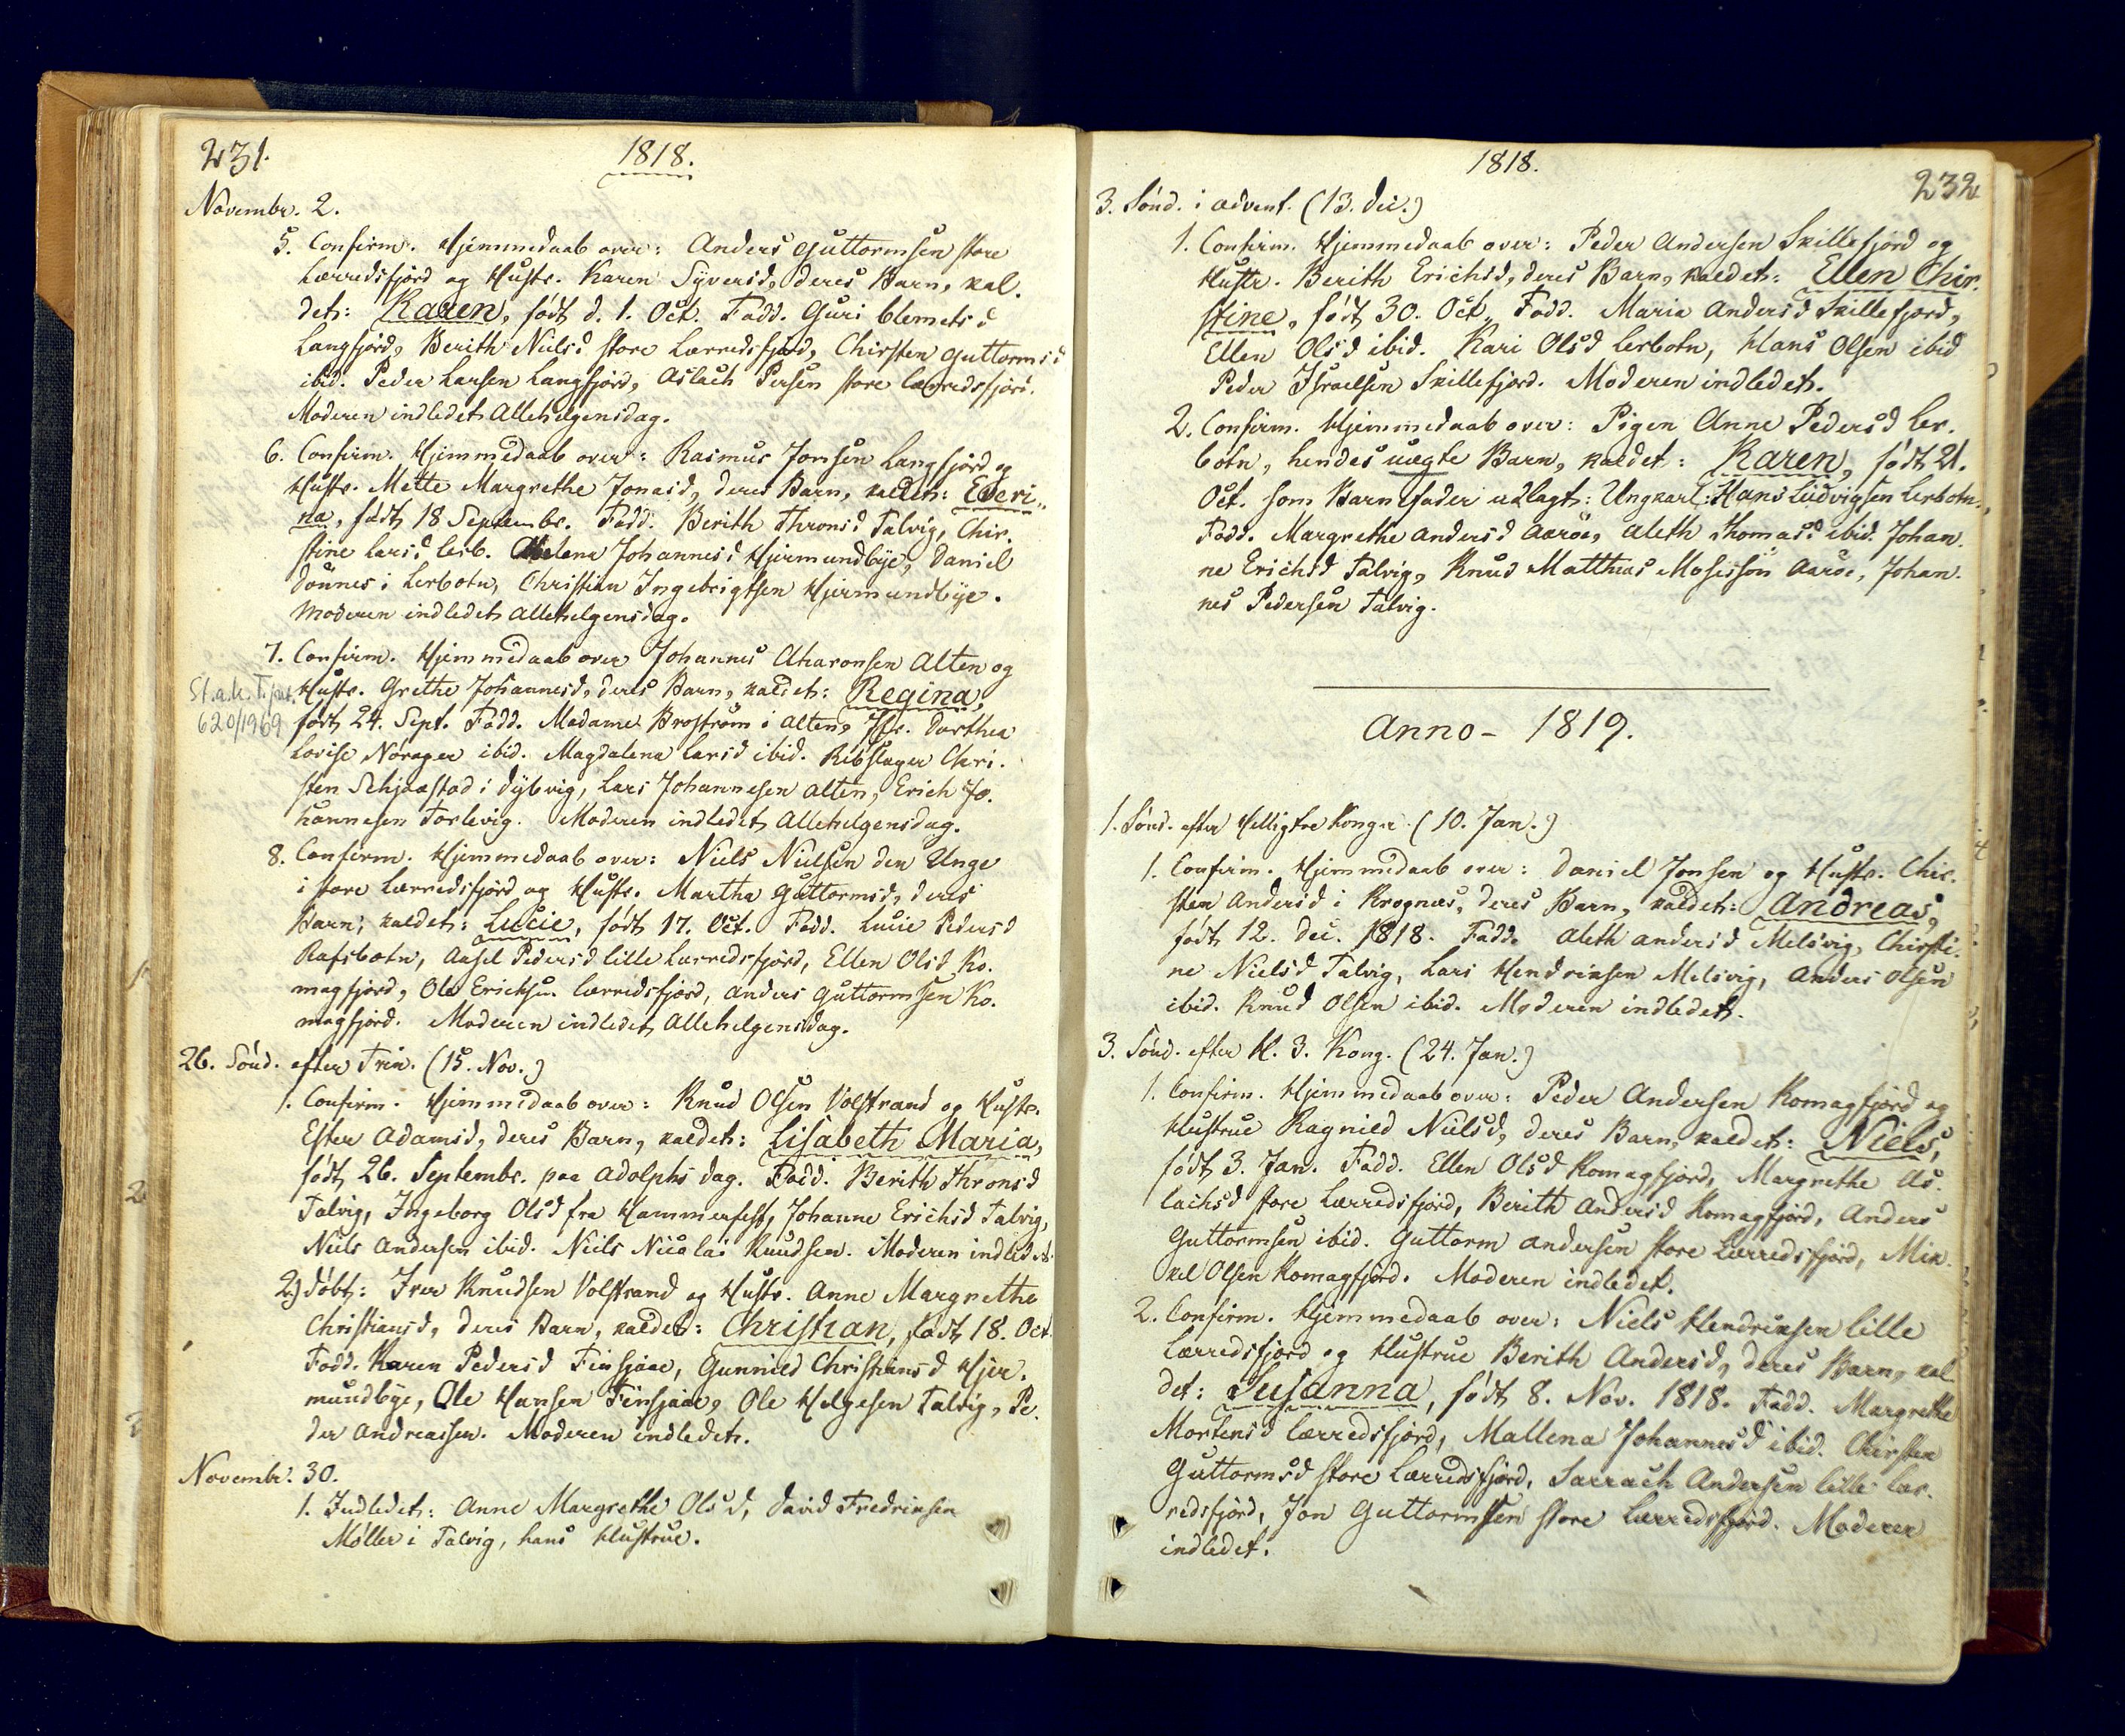 231.
1818.
Novembr. 2.
5. Confirm. Hjemmedaab over: Anders Guttormsen store
Lerredsfjord og Hustr. Karen Syversd, deres Barn, kal-
det: Karen, født d. 1. Oct. Fadd. Guri Clemetsd
Langfjord, Berith Nielsd store Lerredsfjord, Chirsten Guttormsd
ibid. Peder Larsen Langfjord, Aslach Persen store Lerredsfjord.
Moderen indledet Allehelgensdag.
6. Confirm. Hjemmedaab over: Rasmus Jonsen Langfjord og
Hustr. Mette Margrethe Jonasd, deres Barn, kaldet: Everi-
na, født 18 Septembr. Fadd. Berith Thronsd Talvig, Chir-
stine Larsd Lerb. Helena Johannesd Hjermundbye, Daniel
Dønnes i Lerbotn, Christian Ingebrigtsen Hjermundbye.
Moderen indledet Allehelgensdag.
7. Confirm. Hjemmedaab over Johannes Aharonsen Alten og
Hustr. Grethe Johannesd, deres Barn, kaldet: Regina,
St.a.k.
620/1969
født 24. Sept. Fadd. Madame Broström i Alten, Jfr. Dorthea
Lovise Norager ibid. Magdalena Larsd ibid. Rebslager Chri-
sten Schjaastad i Dybvig, Lars Johannesen Alten, Erich Jo-
hannesen Torlevig. Moderen indledet Allehelgensdag.
8. Confirm. Hjemmedaab over: Niels Nielsen den Unge
i store Lerredsfjord og Hustr. Martha Guttormsd, deres
Barn, kaldet: Lucie, født 17. Oct. Fadd. Lucie Pedersd
Rafsbotn, Aasel Pedersd lille Lerredsfjord, Ellen Olsd Ko-
magfjord, Ole Ericksen Lerredsfjord, Anders Guttormsen Ko-
magfjord. Moderen indledet Allehelgensdag.
26. Sønd. efter Trin. (15. Nov.)
1. Confirm. Hjemmedaab over: Knud Olsen Volstrand og Hustr.
Ester Adamsd, deres Barn, kaldet: Lisabeth Maria,
født 26. Septembr. paa Adolphs dag. Fadd. Berith Thronsd
Talvig, Ingeborg Olsd fra Hammerfest, Johanne Erichsd Talvig,
Niels Andersen ibid. Niels Nicolai Knudsen. Moderen indledet.
2.) Døbt: Iver Knudsen Volstrand og Hustr. Anne Margrethe
Christiansd, deres Barn, kaldet: Christian, født 18. Oct.
Fadd. Karen Pedersd Finsjaae, Gunnild Christiansd Hjer-
mundbye, Ole Hansen Finsjaae, Ole Helgesen Talvig, Pe-
der Andreassen. Moderen indledet.
Novembr. 30.
1. Indledet: Anne Margrethe Olsd, David Fredriksen
Møller i Talvig, hans Hustrue.
1818.
232
3. Sønd. i Advent. (13. Dec.)
1. Confirm. Hjemmedaab over: Peder Andersen Skillefjord og
Hustr. Berith Erichsd, deres Barn, kaldet: Ellen Chir-
stine, født 30. Oct. Fadd. Maria Andersd Skillefjord,
Ellen Olsd ibid. Kari Olsd Lerbotn, Hans Olsen ibid
Peder Israelsen Skillefjord. Moderen indledet.
2. Confirm. Hjemmedaab over: Pigen Anne Pedersd Ler-
botn, hendes uægte Barn, kaldet: Karen, født 21.
Oct. som Barnefader udlagt: Ungkarl: Hans Ludvigsen Lerbotn.
Fadd. Margrethe Andersd Aarøe, Aleth Thomasd ibid. Johan-
ne Erichsd Talvig, Knud Matthias Mosesson Aarøe, Johan-
nes Pedersen Talvig.
Anno - 1819.
1. Sønd. efter Hellig tre Konger. (10. Jan.)
1. Confirm. Hjemmedaab over: Daniel Jonsen og Hustr. Chir-
sten Andersd i Krognæs, deres Barn, kaldet: Andreas,
født 12. Dec. 1818. Fadd. Aleth Andersd Melsvig, Chirsti-
ne Nielsd Talvig, Lars Hendriksen Melsvig, Anders Olsen
ibid. Knud Olsen ibid. Moderen indledet.
3. Sønd. efter H. 3. Kong. (24. Jan.)
1. Confirm. Hjemmedaab over: Peder Andersen Komagfjord og
Hustrue Ragnild Nielsd, deres Barn, kaldet: Niels,
født 3. Jan. Fadd. Ellen Olsd Komagfjord, Margrethe As-
lachsd store Lerredsfjord, Berith Andersd Komagfjord, Anders
Guttormsen ibid. Guttorm Andersen store Lerredsfjord, Mik-
kel Olsen Komagfjord. Moderen indledet.
2. Confirm. Hjemmedaab over: Niels Hendriksen lille
Lerredsfjord og Hustrue Berith Andersd, deres Barn, kal-
det: Susanna, født 8. Nov. 1818. Fadd. Margrethe
Mortensd Lerredsfjord, Mallena Johannesd ibid. Chirsten
Guttormsd store Lerredsfjord, Sarrach Andersen lille Ler-
redsfjord, Jon Guttormsen store Lerredsfjord. Moderen
indledet.